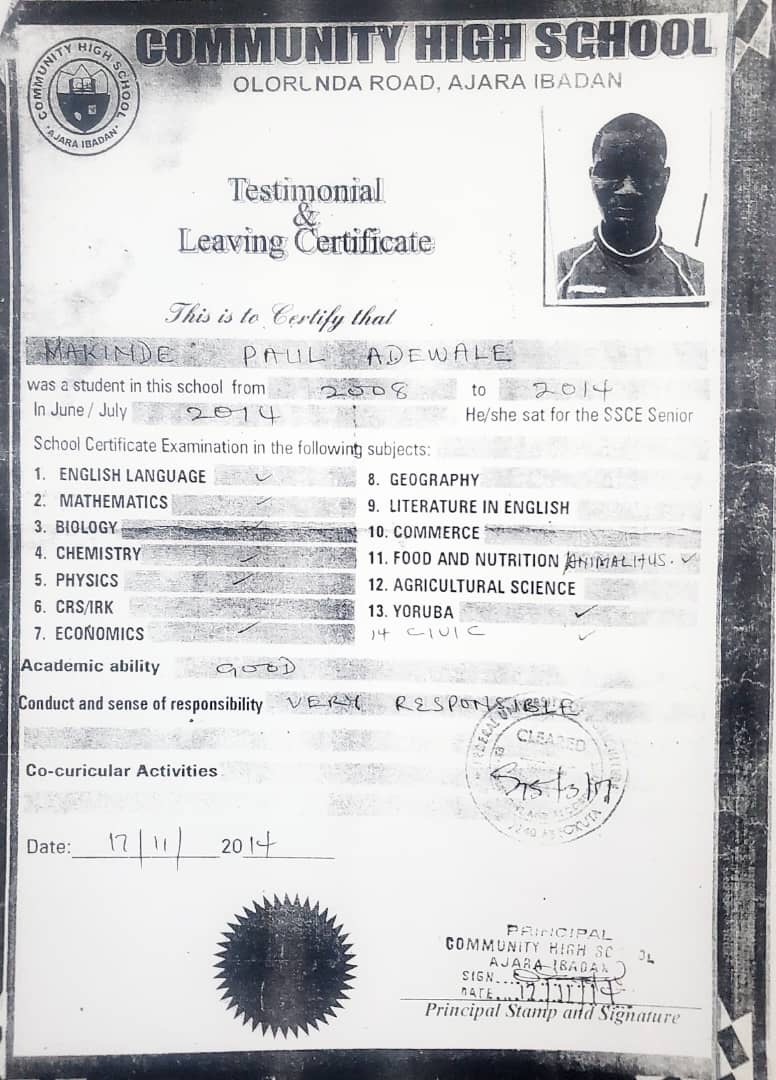 COMMUNITY HIGH SCHOOL
OLORUNDA ROAD, AJARA IBADAN
COMMUNITY HIGH SCHOOL
AJARA IBADAN
Testimonial
&
Leaving Certificate
This is to Certify that
MAKINDE PAUL ADEWALE
was a student in this school from 2008 to 2014
In June / July 2014 He/she sat for the SSCE Senior
School Certificate Examination in the following subjects:
1. ENGLISH LANGUAGE ✓
2. MATHEMATICS ✓
3. BIOLOGY ✓
4. CHEMISTRY ✓
5. PHYSICS ✓
6. CRS/IRK
7. ECONOMICS ✓
8. GEOGRAPHY
9. LITERATURE IN ENGLISH
10. COMMERCE
11. FOOD AND NUTRITION / ANIMAL HUS. ✓
12. AGRICULTURAL SCIENCE
13. YORUBA ✓
14 CIVIC ✓
Academic ability GOOD
Conduct and sense of responsibility VERY RESPONSIBLE
CLEARED
Co-curicular Activities
Date: 17/11/ 2014
PRINCIPAL
COMMUNITY HIGH SCHOOL
AJARA IBADAN
SIGN
DATE 17/11/14
Principal Stamp and Signature